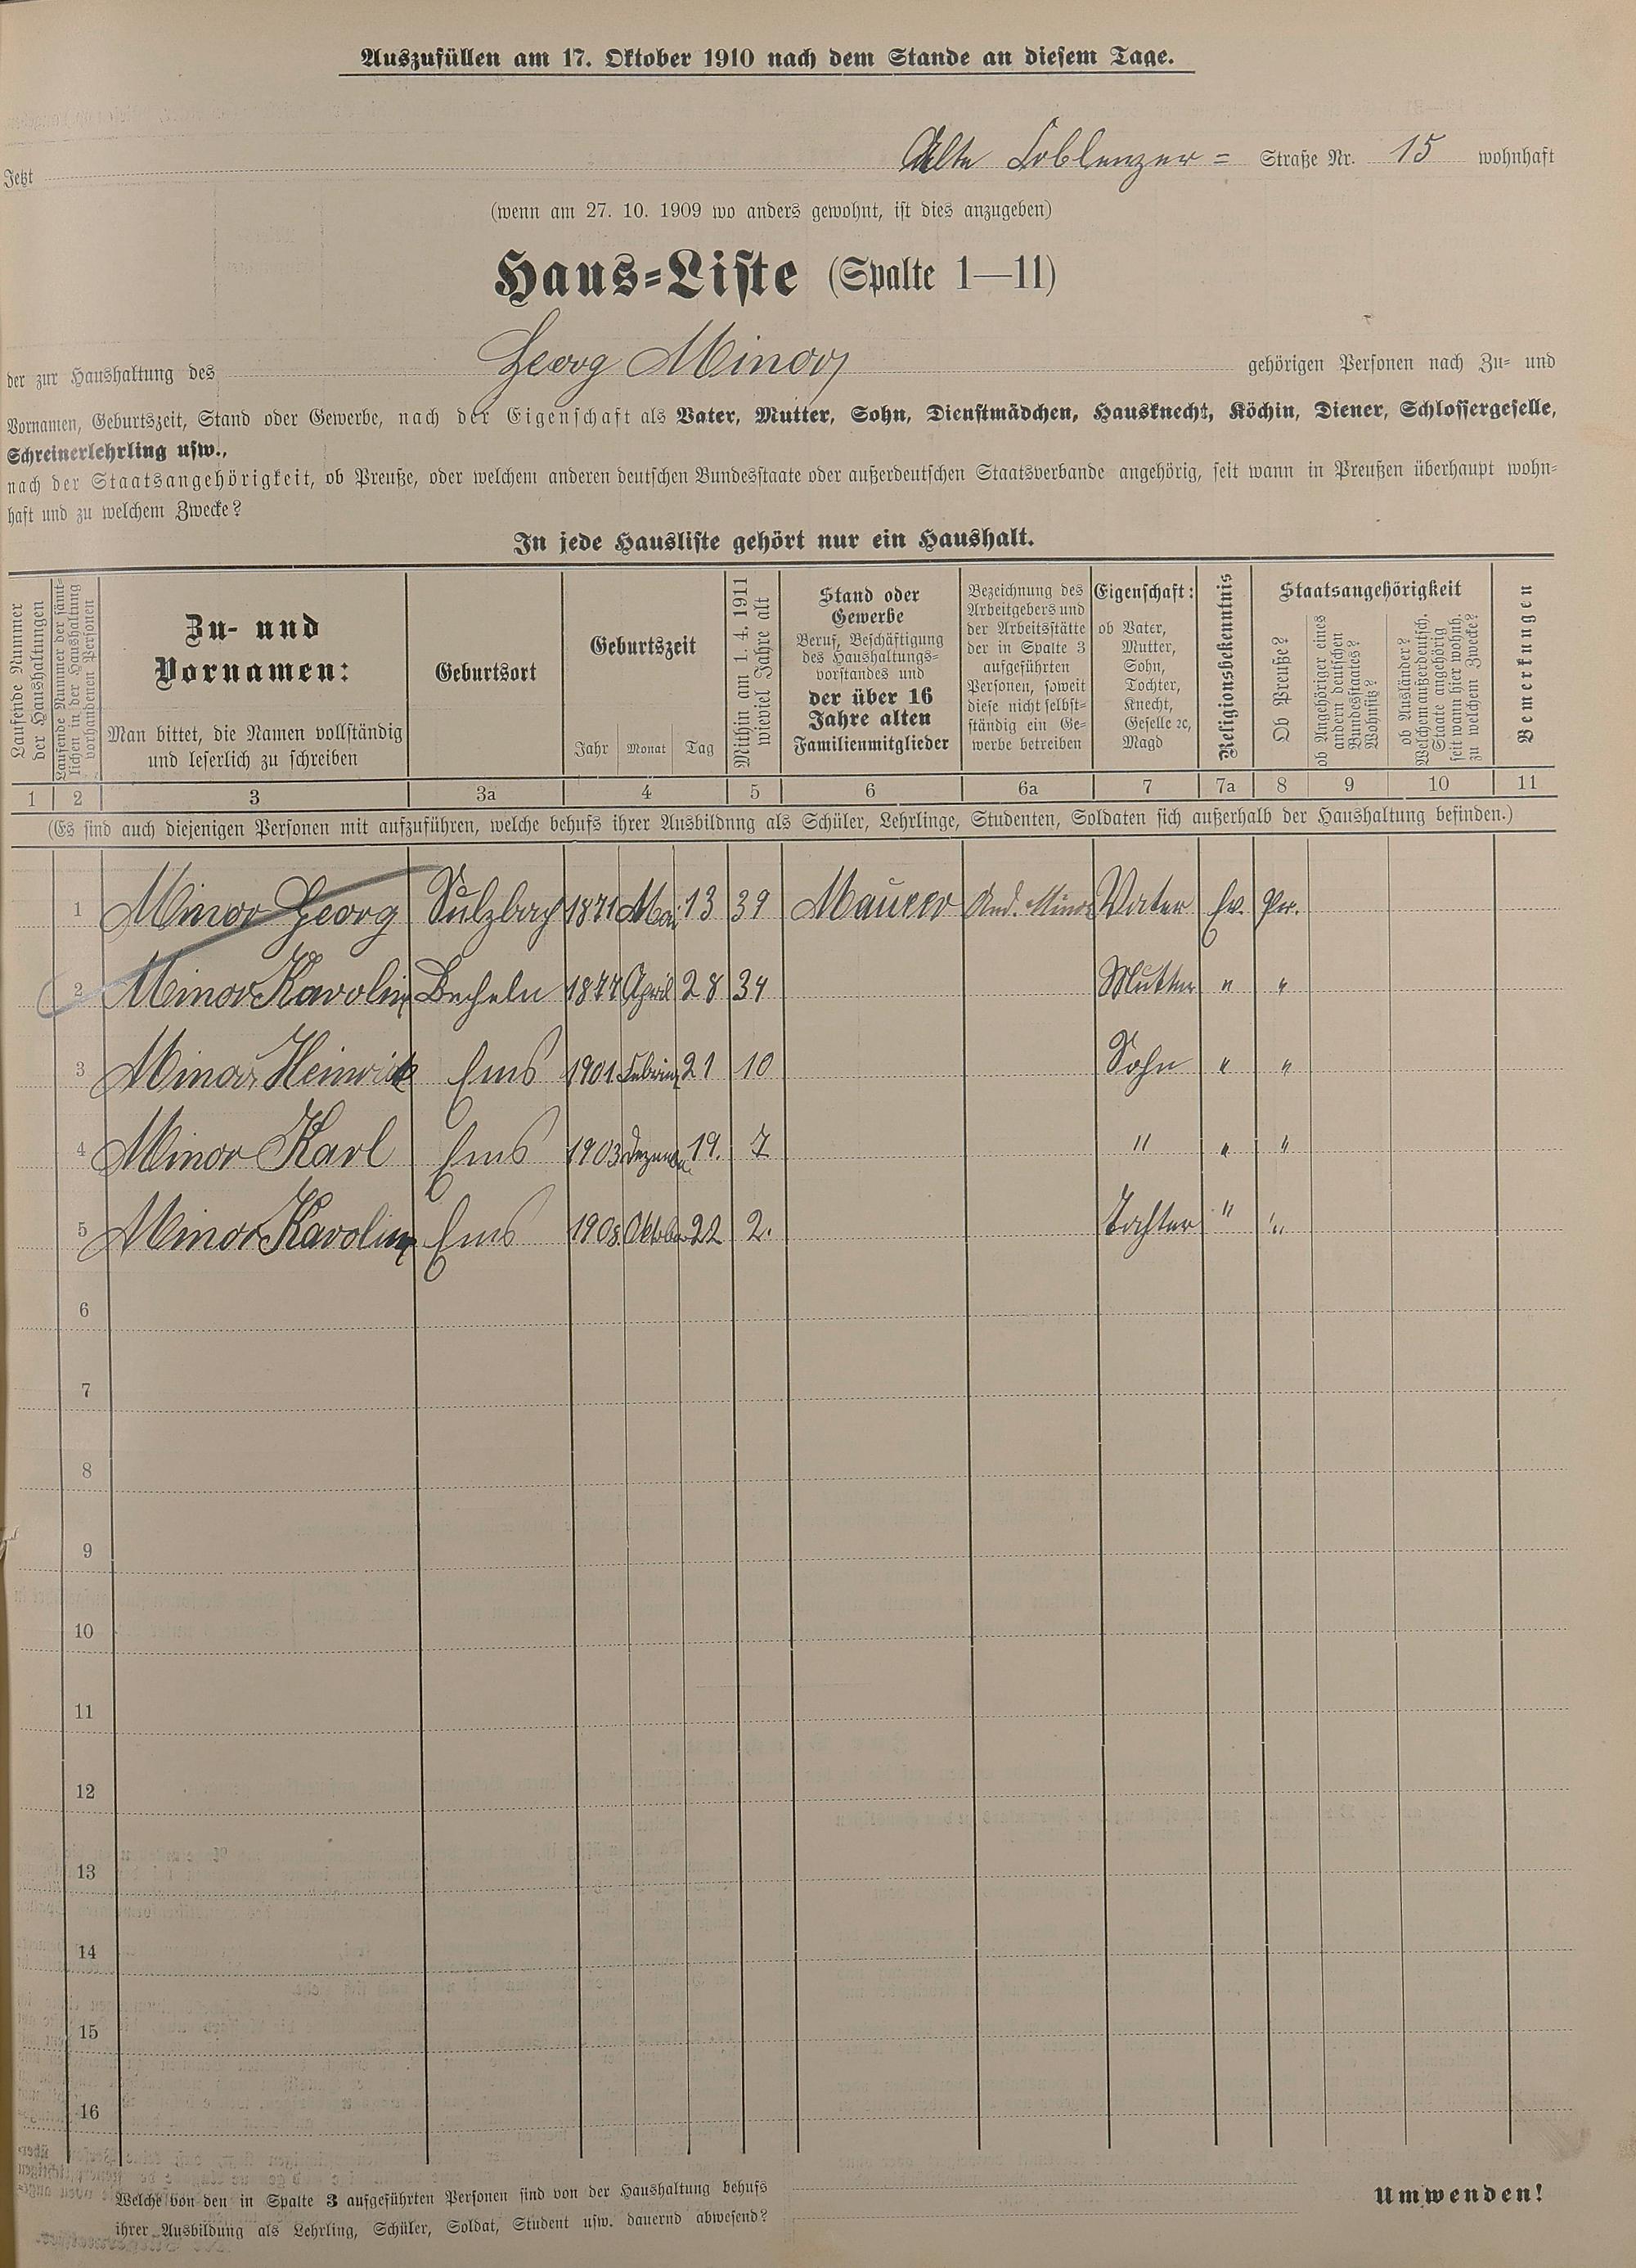 Auszufüllen am 17. Oktober 1910 nach dem Stande an diesem Tage.
Jetzt Alte Coblenzer= Straße Nr. 15 wohnhaft
(wenn am 27. 10. 1909 wo anders gewohnt, ist dies anzugeben)
Haus=Liste (Spalte 1—11)
der zur Haushaltung des Georg Minor gehörigen Personen nach Zu= und
Vornamen, Geburtszeit, Stand oder Gewerbe, nach der Eigenschaft als Vater, Mutter, Sohn, Dienstmädchen, Hausknecht, Köchin, Diener, Schlossergeselle,
Schreinerlehrling usw.,
nach der Staatsangehörigkeit, ob Preuße, oder welchem anderen deutschen Bundesstaate oder außerdeutschen Staatsverbande angehörig, seit wann in Preußen überhaupt wohn=
haft und zu welchem Zwecke?
In jede Hausliste gehört nur ein Haushalt.
Laufende Nummer
der Haushaltungen
Laufende Nummer der sämt=
lichen in der Haushaltung
vorhandenen Personen
Zu- und
Vornamen:
Man bittet, die Namen vollständig
und leserlich zu schreiben
Geburtsort
Geburtszeit
Jahr Monat Tag
Mithin am 1. 4. 1911
wieviel Jahre alt
Stand oder
Gewerbe
Beruf, Beschäftigung
des Haushaltungs=
vorstandes und
der über 16
Jahre alten
Familienmitglieder
Bezeichnung des
Arbeitgebers und
der Arbeitsstätte
der in Spalte 3
aufgeführten
Personen, soweit
diese nicht selbst=
ständig ein Ge=
werbe betreiben
Eigenschaft:
ob Vater,
Mutter,
Sohn,
Tochter,
Knecht,
Geselle ꝛc,
Magd
Religionsbekenntnis
Staatsangehörigkeit
Ob Preuße?
ob Angehöriger eines
andern deutschen
Bundesstaates?
Wohnsitz?
ob Ausländer?
Welchem außerdeutsch.
Staate angehörig
seit wann hier wohnh.
zu welchem Zwecke?
Bemerkungen
1 2 3 3a 4 5 6 6a 7 7a 8 9 10 11
(Es sind auch diejenigen Personen mit aufzuführen, welche behufs ihrer Ausbildnng als Schüler, Lehrlinge, Studenten, Soldaten sich außerhalb der Haushaltung befinden.)
1 Minor Georg Sulzbach 1871 Mai 13 39 Maurer And. Minor Vater Ev. Pr.
2 Minor Karoline Becheln 1877 April 28 34 Mutter " "
3 Minor Heinrich Ems 1901 Februar 21 10 Sohn " "
4 Minor Karl Ems 1903 Dezember 19. 7 " " "
5 Minor Karoline Ems 1908 Oktober 22 2. Tochter " "
6
7
8
9
10
11
12
13
14
15
16
Welche von den in Spalte 3 aufgeführten Personen sind von der Haushaltung behufs
ihrer Ausbildung als Lehrling, Schüler, Soldat, Student usw. dauernd abwesend?
Umwenden!